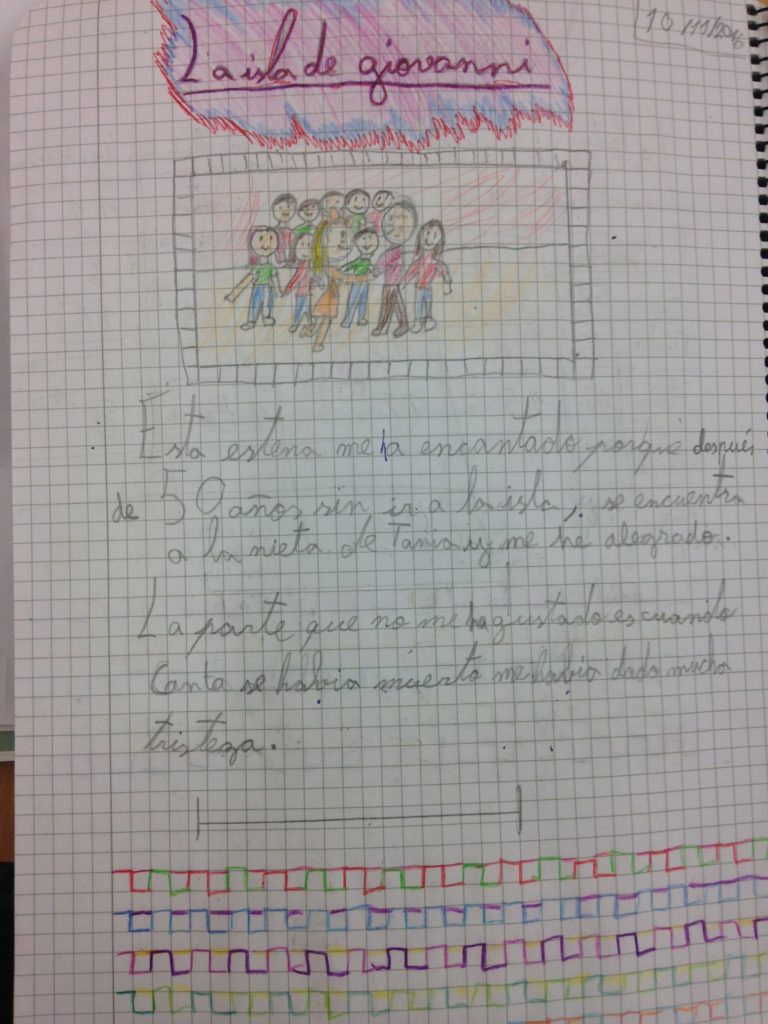 10/11/2016
La isla de giovanni
Esta estena me ha encantado porque después
de 50 años sin ir a la isla, se encuentra
a la nieta de Tania y me he alegrado.
La parte que no me ha gustado es cuando
Canta se habia muerto me habia dado mucha
tristeza.